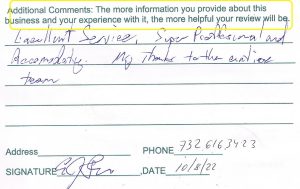 Additional Comments: The more information you provide about this
business and your experience with it, the more helpful your review will be.
Excellent Service, Super Professional and
Accomodating. My thanks to the entire
team
Address PHONE 732 616 3423
SIGNATURE ,DATE 10/8/22